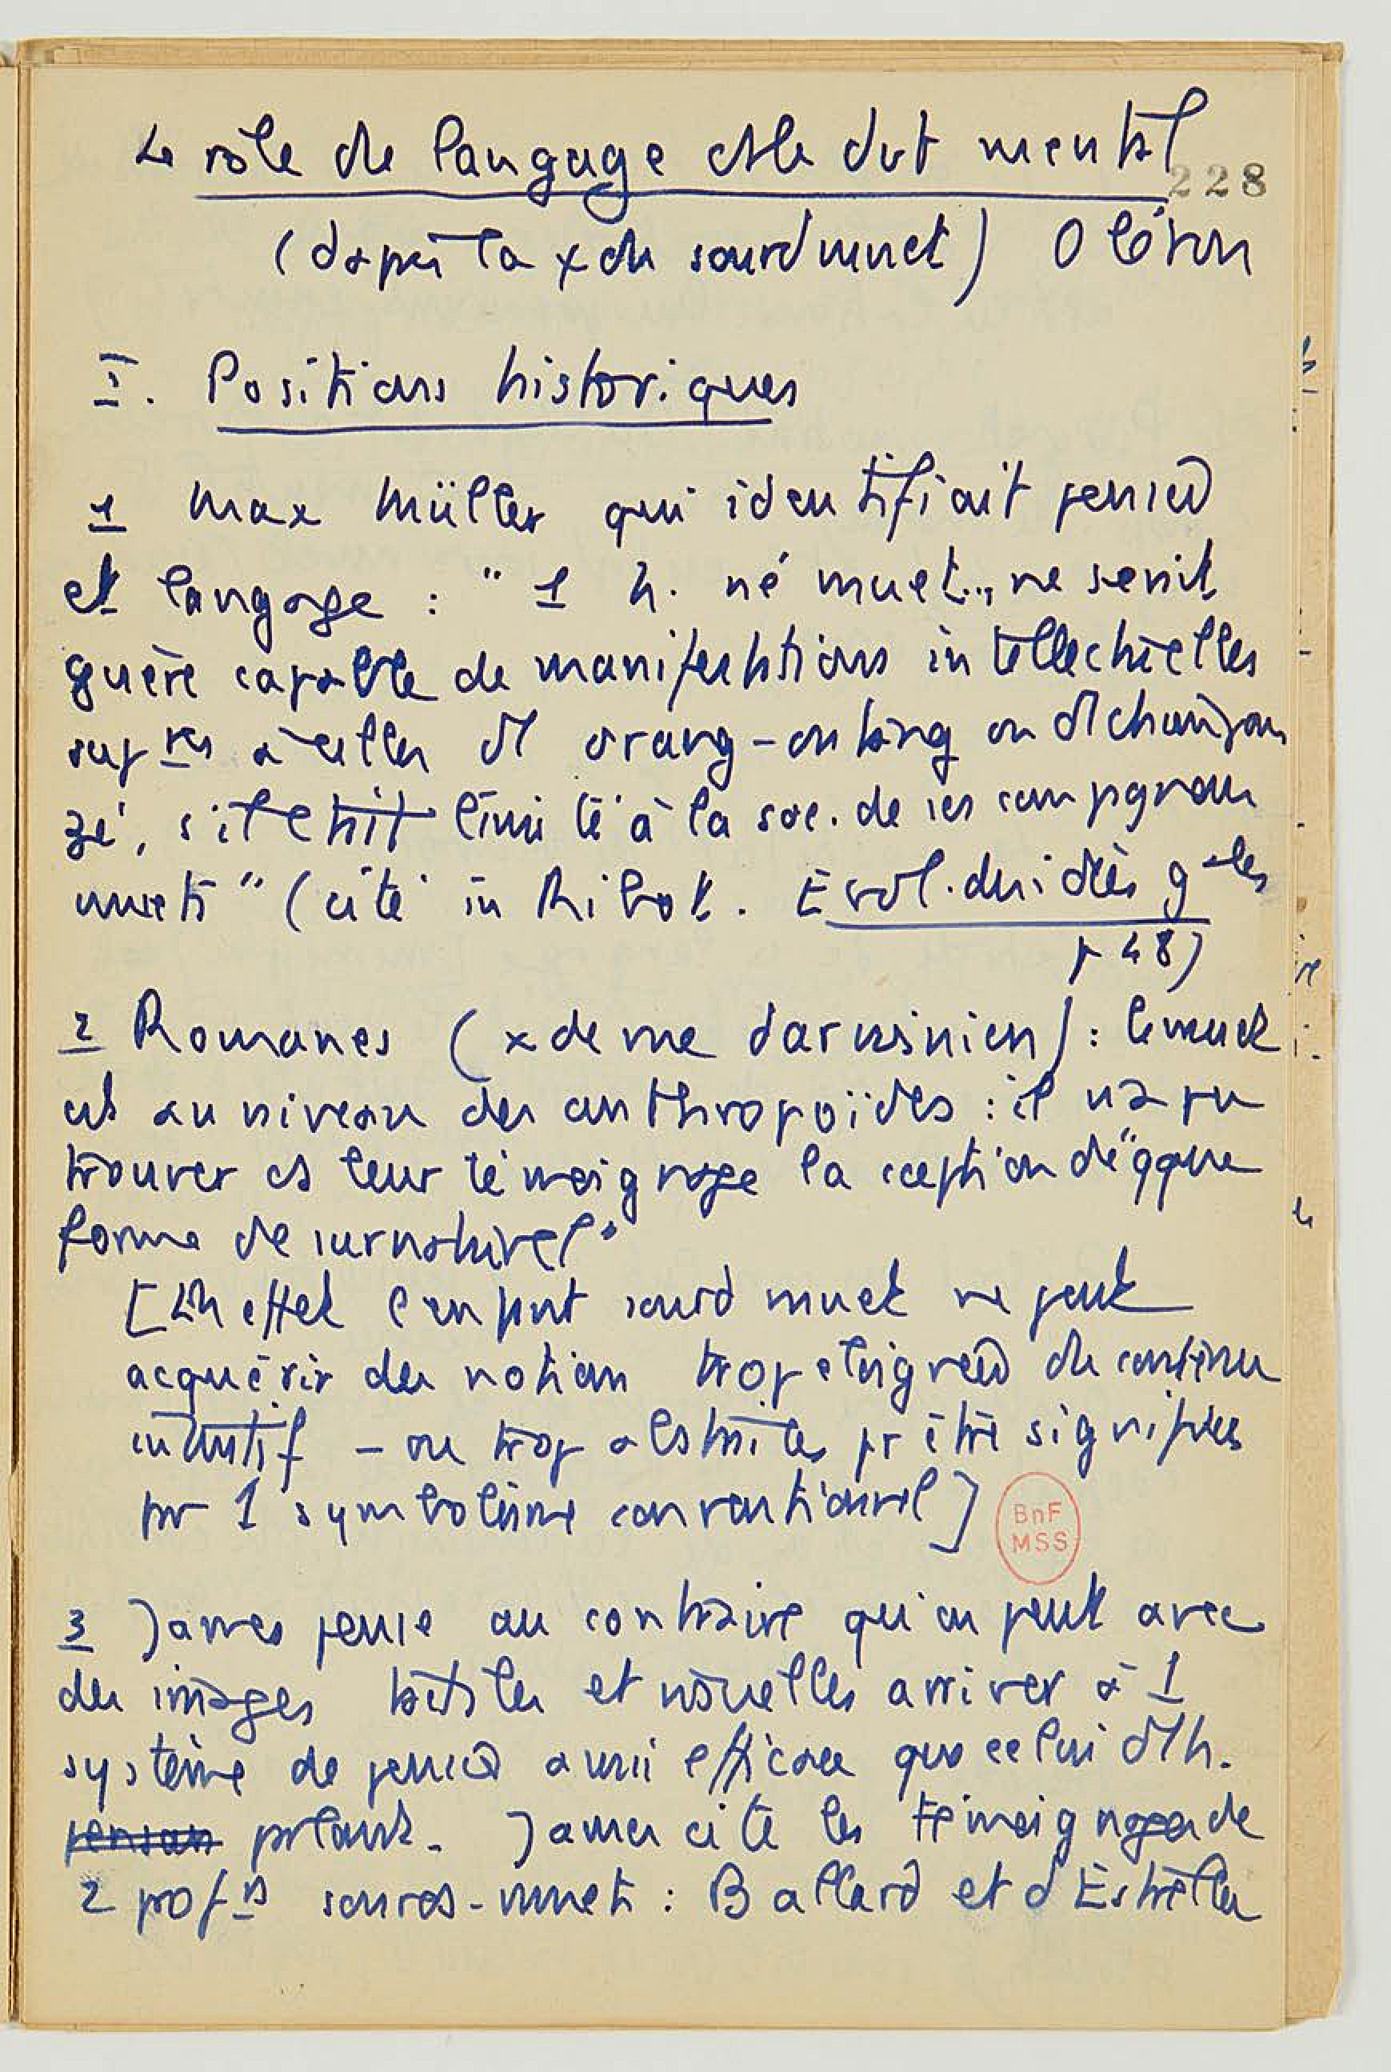 Le rôle du langage ds le dvt mental
228
(d'après la ψ du sourd muet) Oléron
I. Positions historiques
1 Max Müller qui identifiait pensée
et langage : " 1 h. né muet... ne serait
guère capable de manifestations intellectuelles
sup res à celles d'1 orang-outang ou d'1 chimpan
zé, s'il était limité à la soc. de ses compagnons
muets " (cité in Ribot. Evol. des idées g ales
p 48)
2 Romanes ( de vue darwinien) : le muet
est au niveau des anthropoïdes : il n'a pu
trouver ds leur témoignage la ception de "qque
forme de surnaturel"
[En effet l'enfant sourd muet ne peut
acquérir des notions trop éloignées du contenu
intuitif – ou trop abstraites pr être signifiées
par 1 symbolisme conventionnel]
BnF
MSS
3 James pense au contraire qu'on peut avec
des images tactiles et visuelles arriver à 1
système de pensée aussi efficace que celui d'1 h.
pensan parlant. James cite les témoignages de
2 prof rs sourds-muets : Ballard et d'Estrella